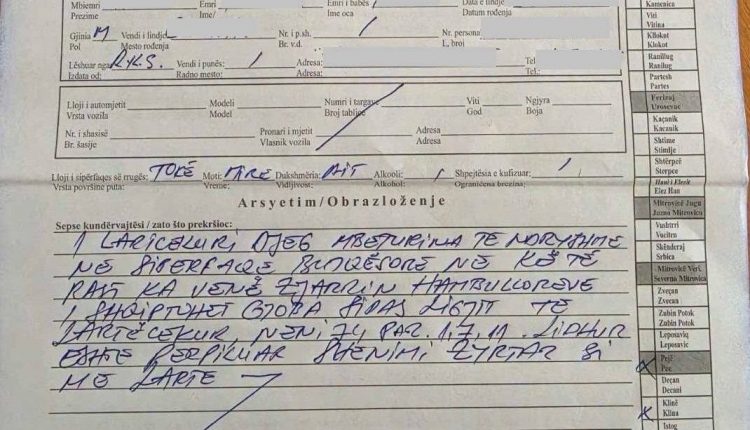 Mbiemri Emri Emri i babës Data e lindjes
Prezime Ime/ Ime oca Datum rođenja
Gjinia M Vendi i lindjes Nr. i p.sh. / Nr. persona
Pol Mesto rođenja Br. v.d. L. broj
Lëshuar nga R.K.S. Vendi i punës: / Adresa: Tel
Izdata od: Radno mesto: Adresa: Tel.:
Lloji i automjetit Modeli Numri i targave Viti Ngjyra
Vrsta vozila Model Broj tablice God Boja
Nr. i shasisë Pronari i mjetit Adresa
Br. šasije Vlasnik vozila Adresa
Lloji i sipërfaqes së rrugës: TOKË Moti: MIRË Dukshmëria: Alkooli: / Shpejtësia e kufizuar: /
Vrsta površine puta: Vreme: Vidljivost: Alkohol: Ograničena brzina:
Arsyetim/Obrazloženje
Sepse kundërvajtësi / zato što prekršioc:
I LARTCEKURI DJEG MBETURINA TË NDRYSHME
NË SIPERFAQE BUJQËSORE NË KËTË
RAST KA VENË ZJARRIN HAMBULLOREVE
I SHQIPTOHET GJOBA SIPAS LIGJIT TË
LARTËCEKUR NENI 74 PAR. 1.7, 11. LIDHUR
ESHTË PERPILUAR SHENIMI ZYRTAR SI
MË LARTË
Kamenica
Viti
Vitina
Kllokot
Klokot
Ranillug
Ranilug
Partesh
Partes
Ferizaj
Urosevac
Kaçanik
Kacanik
Shtime
Stimlje
Shtërpcë
Sterpce
Hani i Elezit
Elez Han
Mitrovicë Jugu
Juzna Mitrovica
Vushtrri
Vucitrn
Skënderaj
Srbica
Mitrovicë Veri
Severna Mitrovica
Zveçan
Zvecan
Zubin Potok
Zubin Potok
Leposaviq
Leposavic
x Pejë
Pec
Deçan
Decani
x Klinë
Klina
Istog